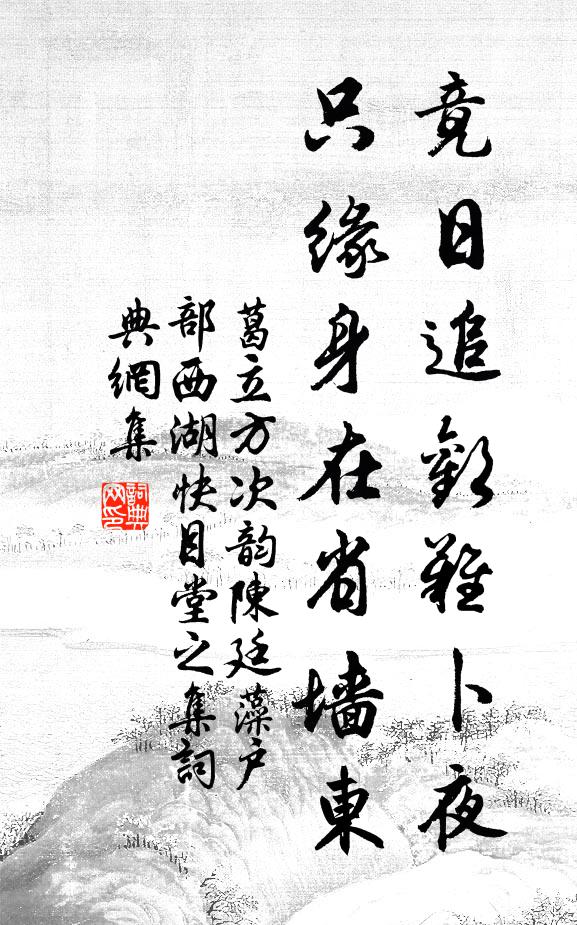 竟日追歡難卜夜
只緣身在省墙東
葛立方次韵陳廷藻户
部西湖快目堂之集詞
典網集
詞典网印